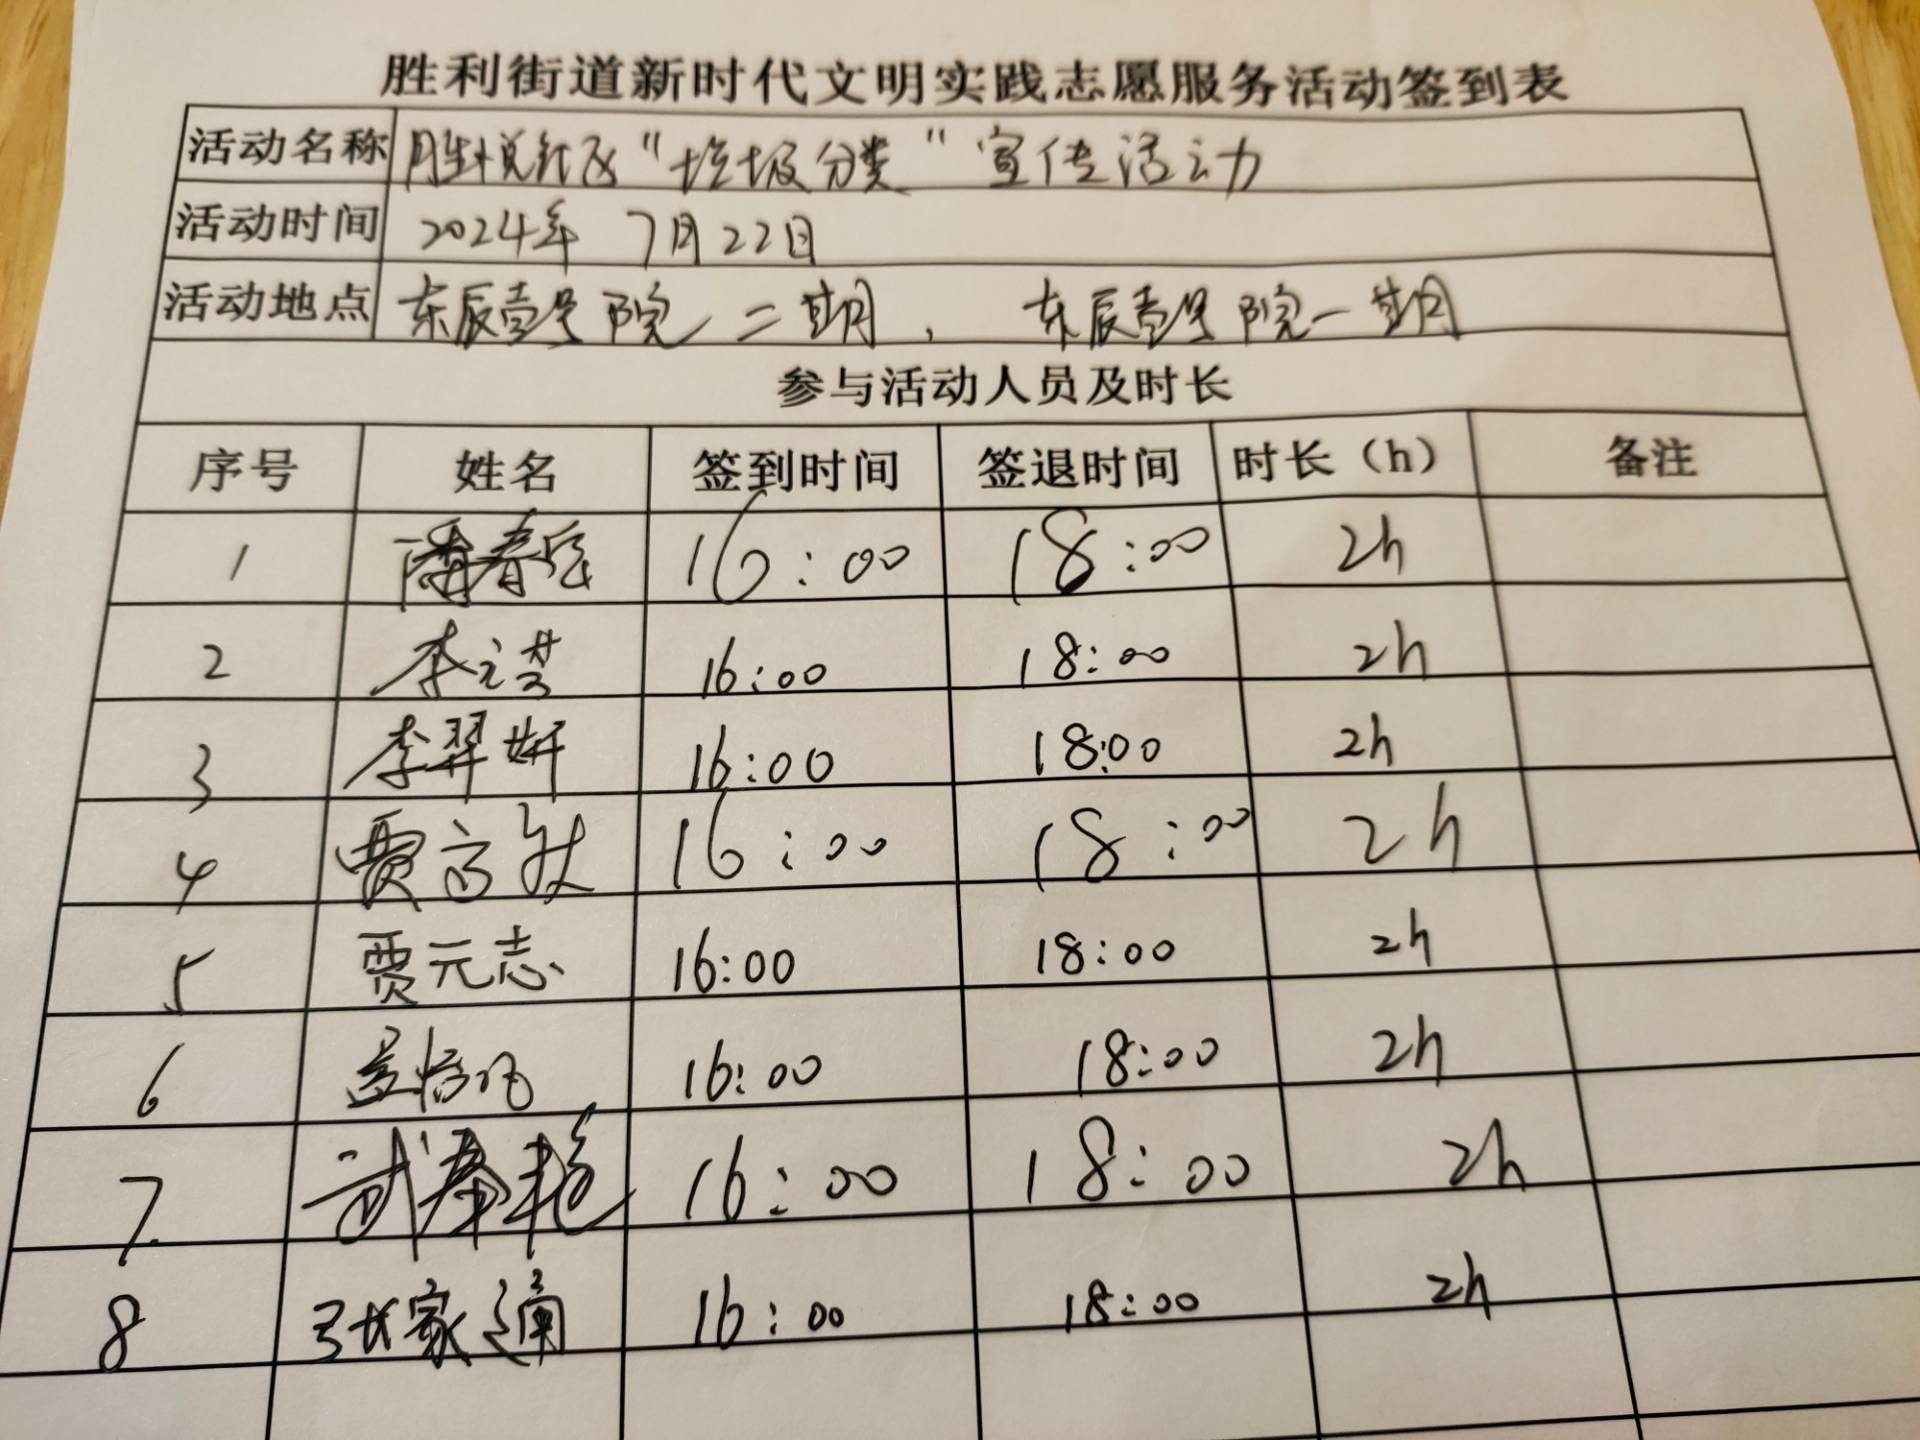 胜利街道新时代文明实践志愿服务活动签到表
活动名称 胜悦社区“垃圾分类”宣传活动
活动时间 2024年 7月22日
活动地点 东辰壹号院二期, 东辰壹号院一期
参与活动人员及时长
序号 姓名 签到时间 签退时间 时长（h） 备注
1 16:00 18:00 2h
2 李 16:00 18:00 2h
3 李羿妍 16:00 18:00 2h
4 贾 16:00 18:00 2h
5 贾元志 16:00 18:00 2h
6 16:00 18:00 2h
7. 武春艳 16:00 18:00 2h
8 张家通 16:00 18:00 2h